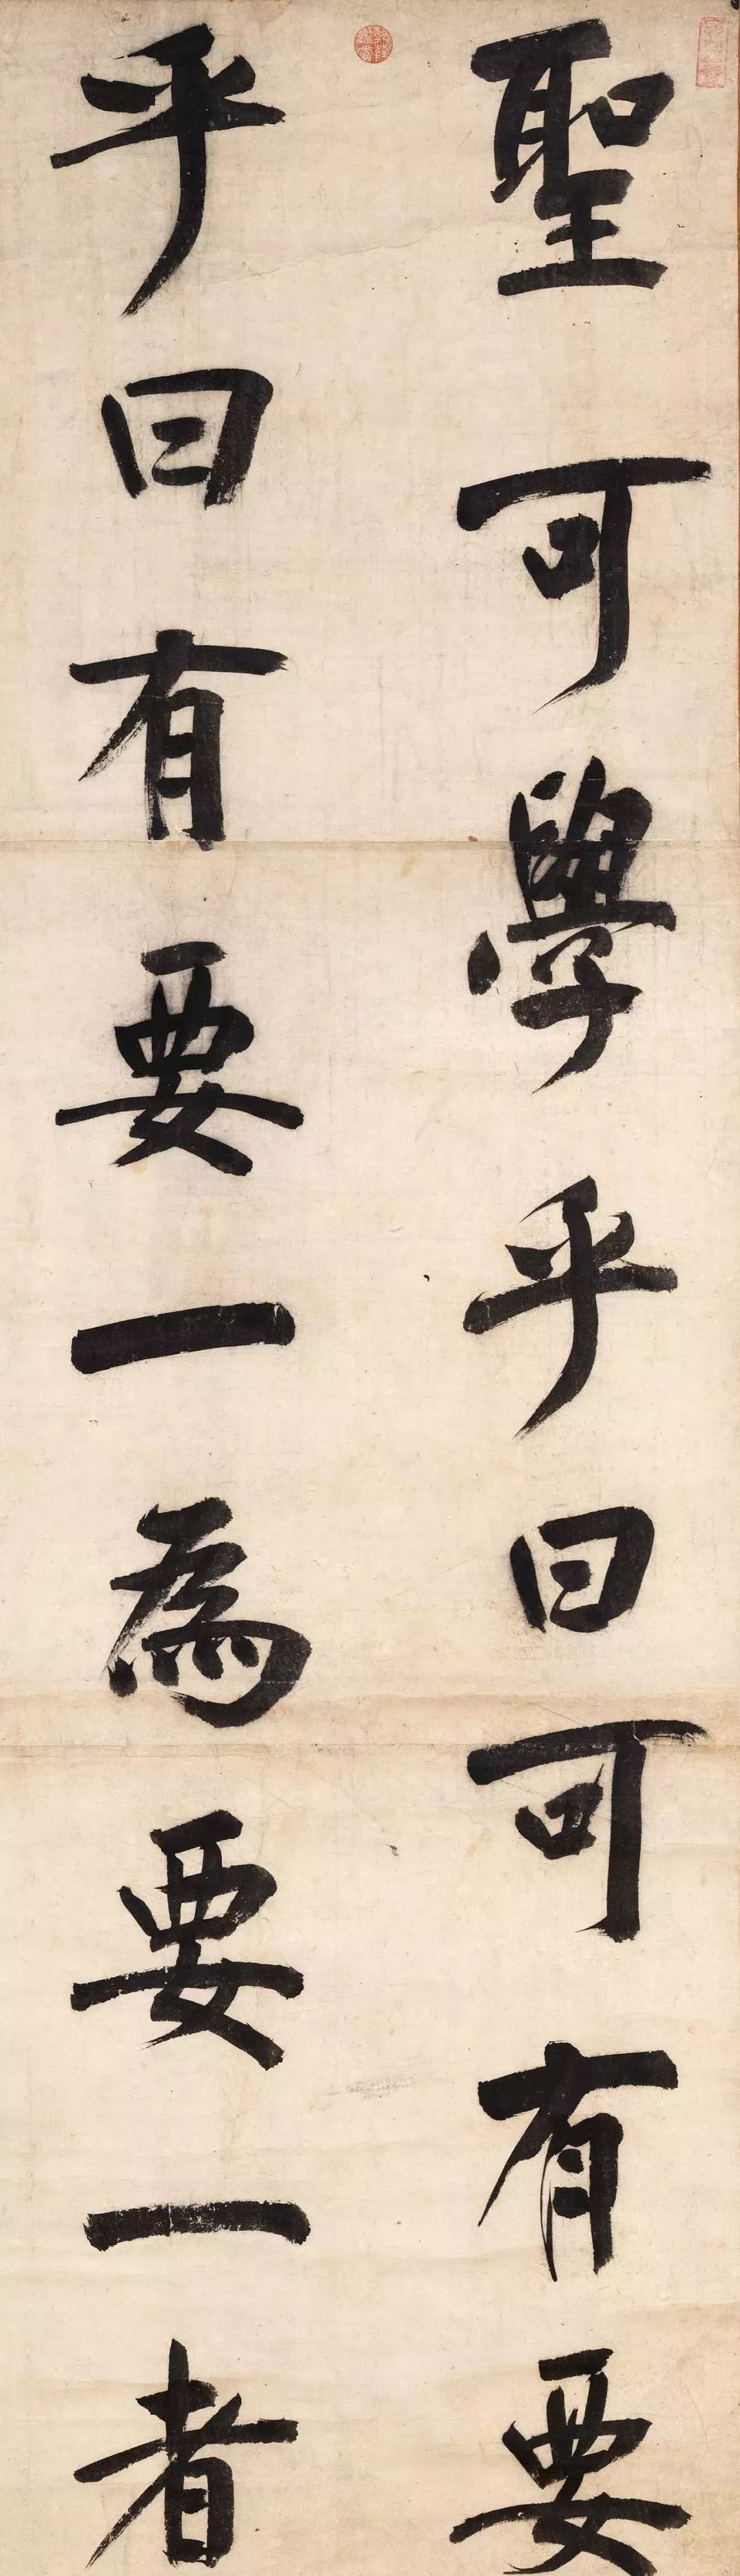 聖可學乎曰可有要
乎曰有要一為要一者